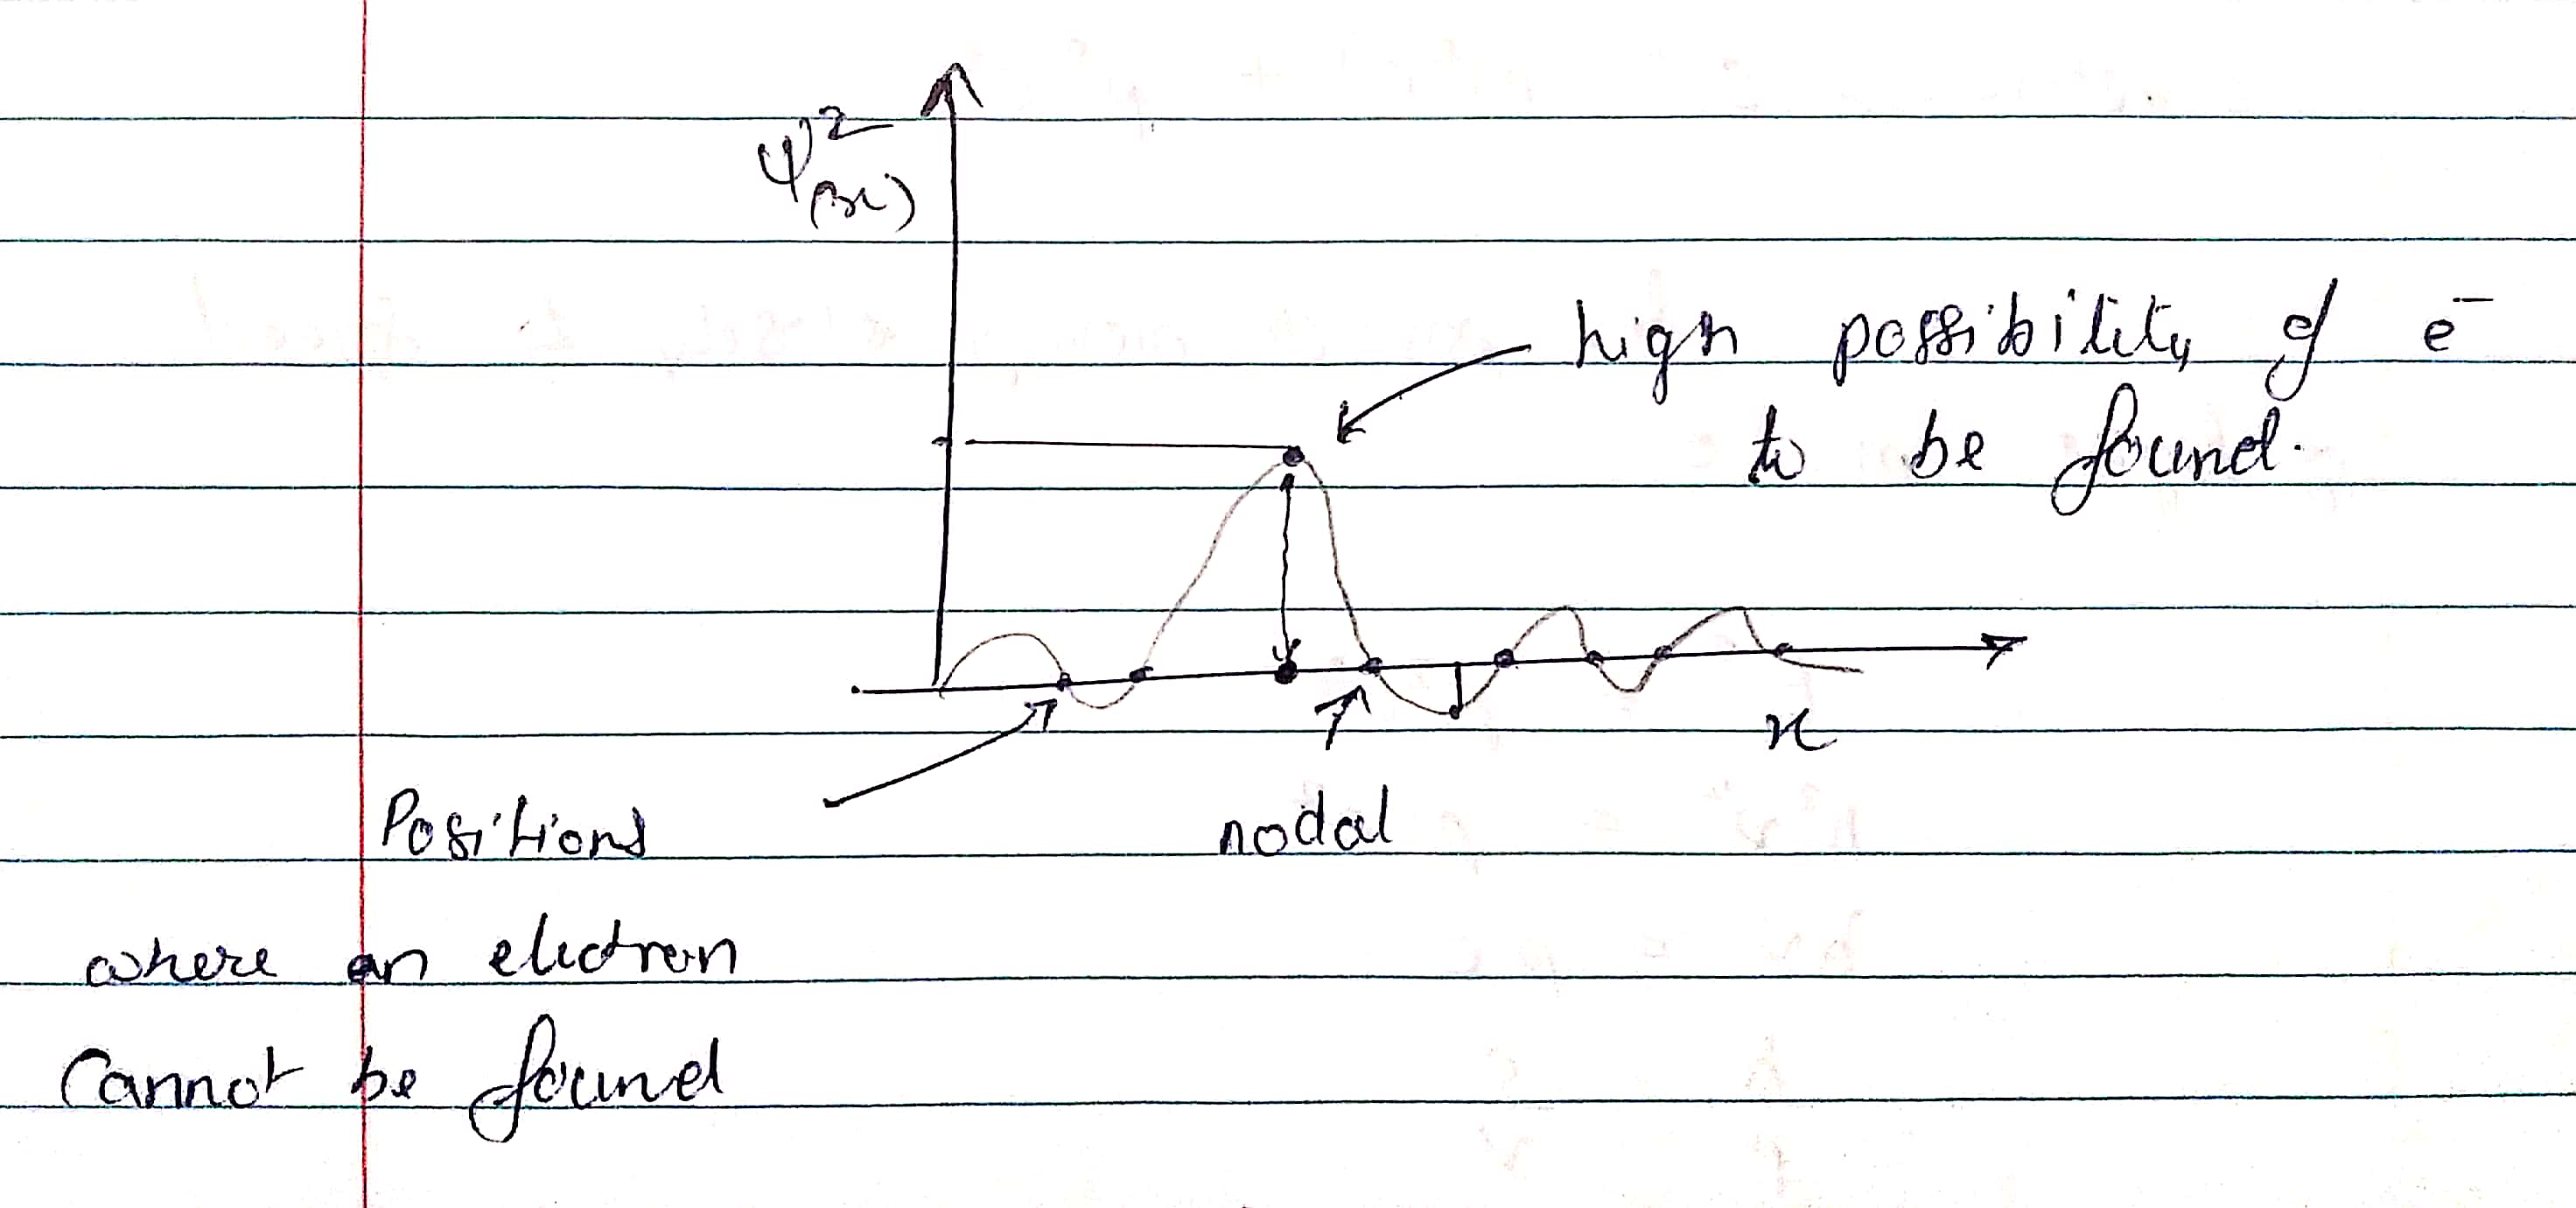 ψ²(x)
high possibility of e⁻
to be found.
x
Positions
nodal
where an electron
Cannot be found